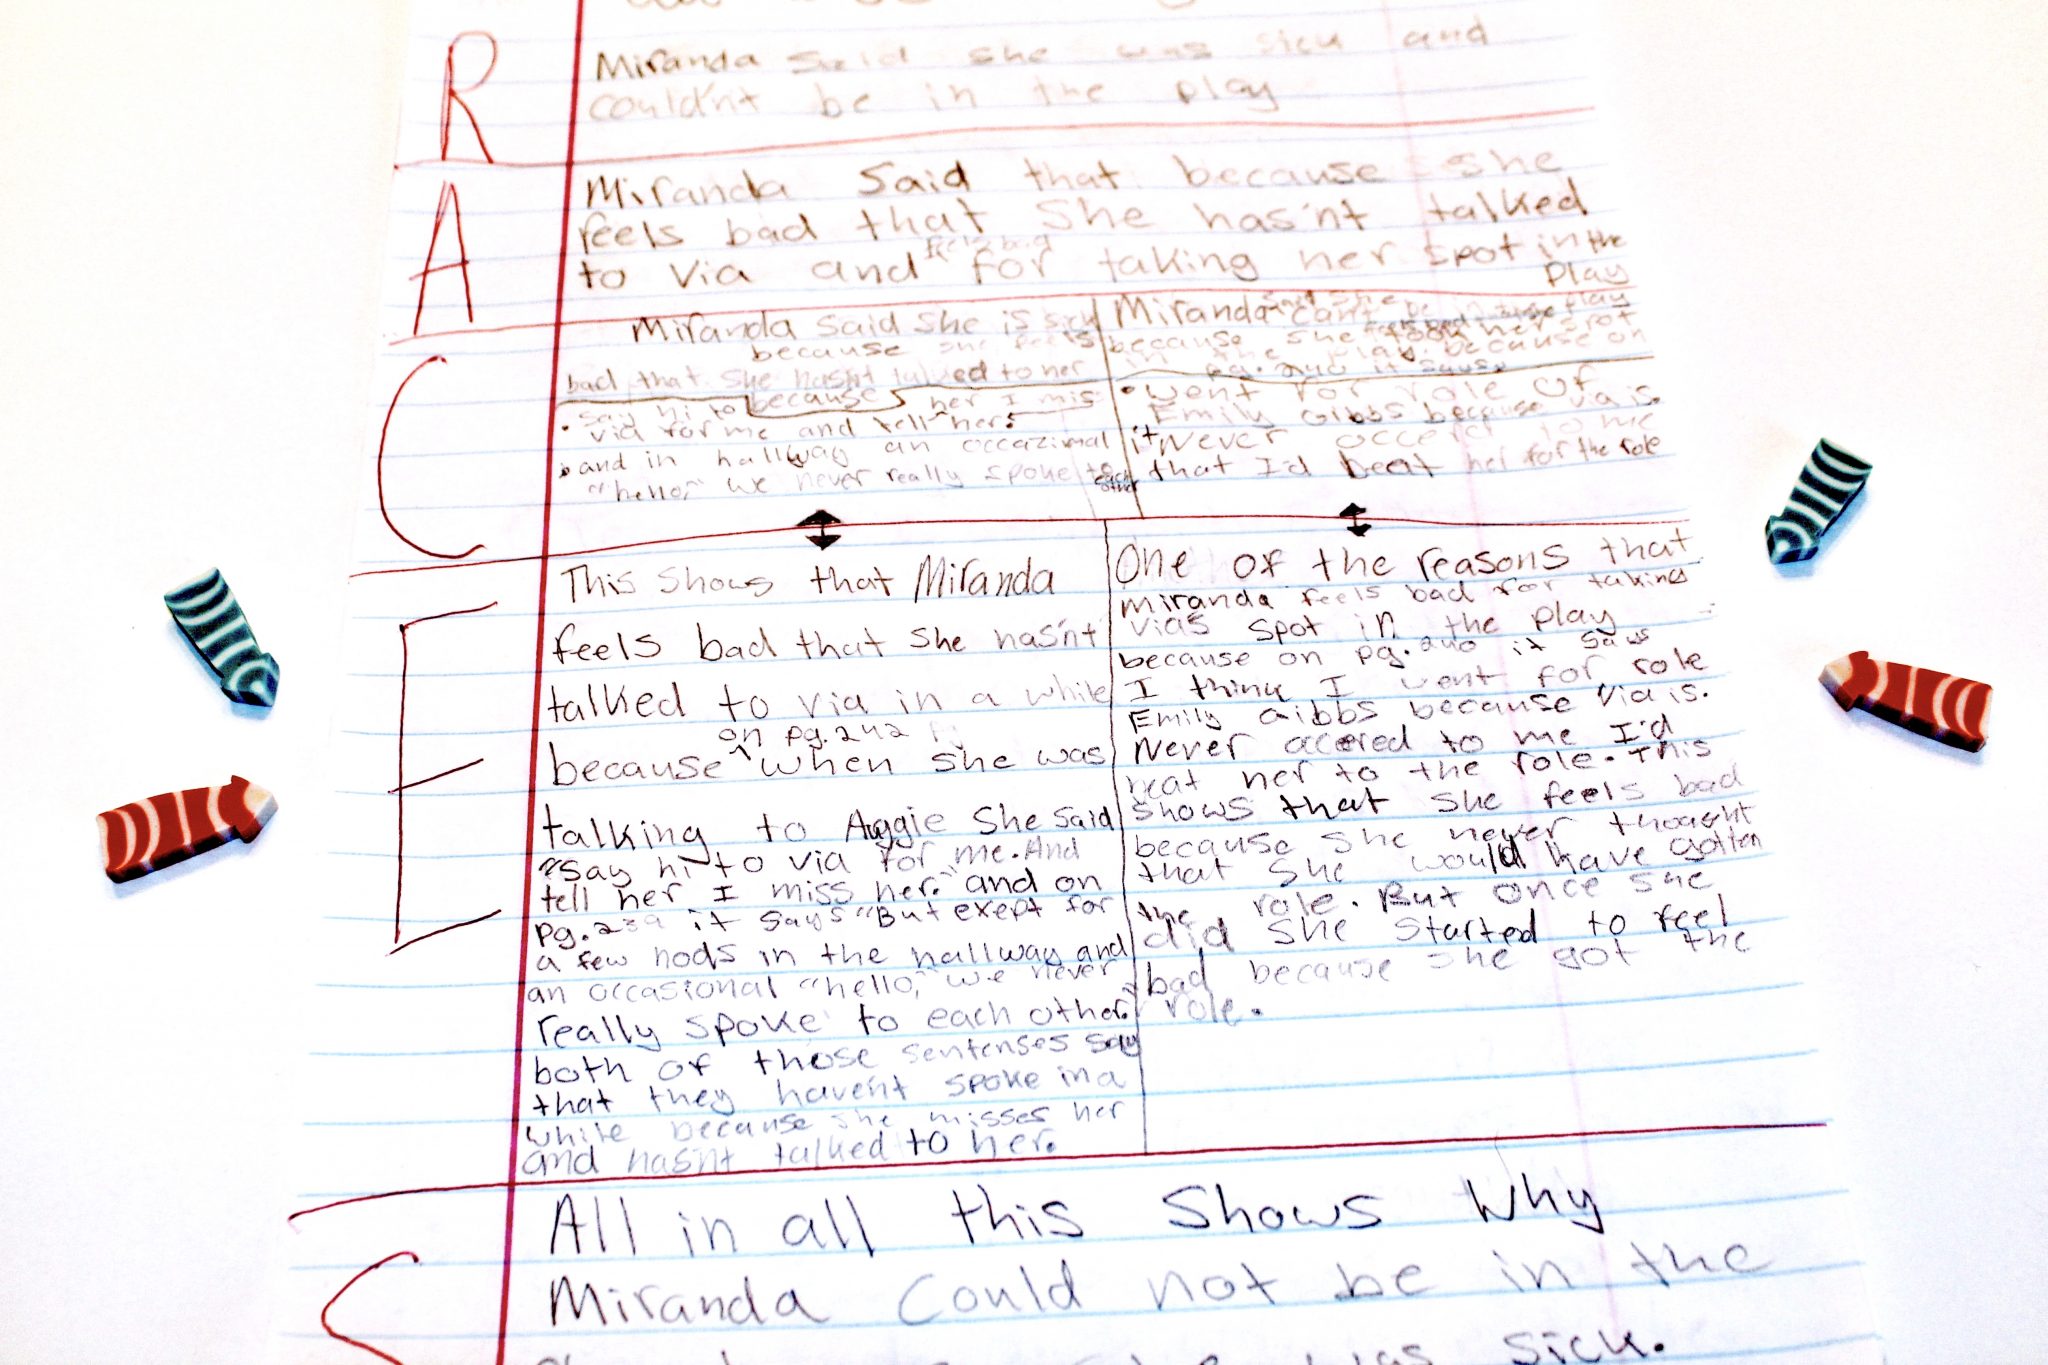 R
Miranda said she was sick and
could'nt be in the play
A
Miranda said that because she
feels bad that she has'nt talked
to Via and feels bad for taking her spot in the
play
C
Miranda said she is sick
because she feels
bad that she hasn't talked to her
because
• say hi to her I mis
via for me and tell her.
• and in hallway an occazimal
"hello," we never really spoke to each
other
Miranda said she can't be in the play
because she feels bad took her spot
in the play. because on
pg. 240 it says
• went for role of
Emily Gibbs because via is.
it Never occerd to me
that I'd beat her for the role
E
This shows that Miranda
feels bad that she hasn't
talked to via in a while
on pg. 242
because ^ when she was
talking to Auggie she said
"say hi to via for me. And
tell her I miss her." and on
pg. 239 it says "But exept for
a few nods in the hallway and
an occasional "hello," we never
really spoke to each other.
both of those sentenses say
that they haven't spoke in a
while because she misses her
and hasn't talked to her.
One of the reasons that
Miranda feels bad for taking
vias spot in the play
because on pg. 240 it says
I think I went for role
Emily Gibbs because Via is.
Never accered to me I'd
beat her to the role. This
shows that she feels bad
because she never thought
that she would have gotten
the role. But once she
did she started to feel
bad because she got the
role.
C
All in all this shows why
Miranda could not be in the
was sick.